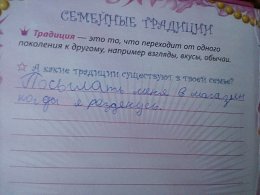 СЕМЕЙНЫЕ ТРАДИЦИИ
Традиция — это то, что переходит от одного
поколения к другому, например взгляды, вкусы, обычаи.
А какие традиции существуют в твоей семье?
Посылать меня в магазин
когда я разденусь